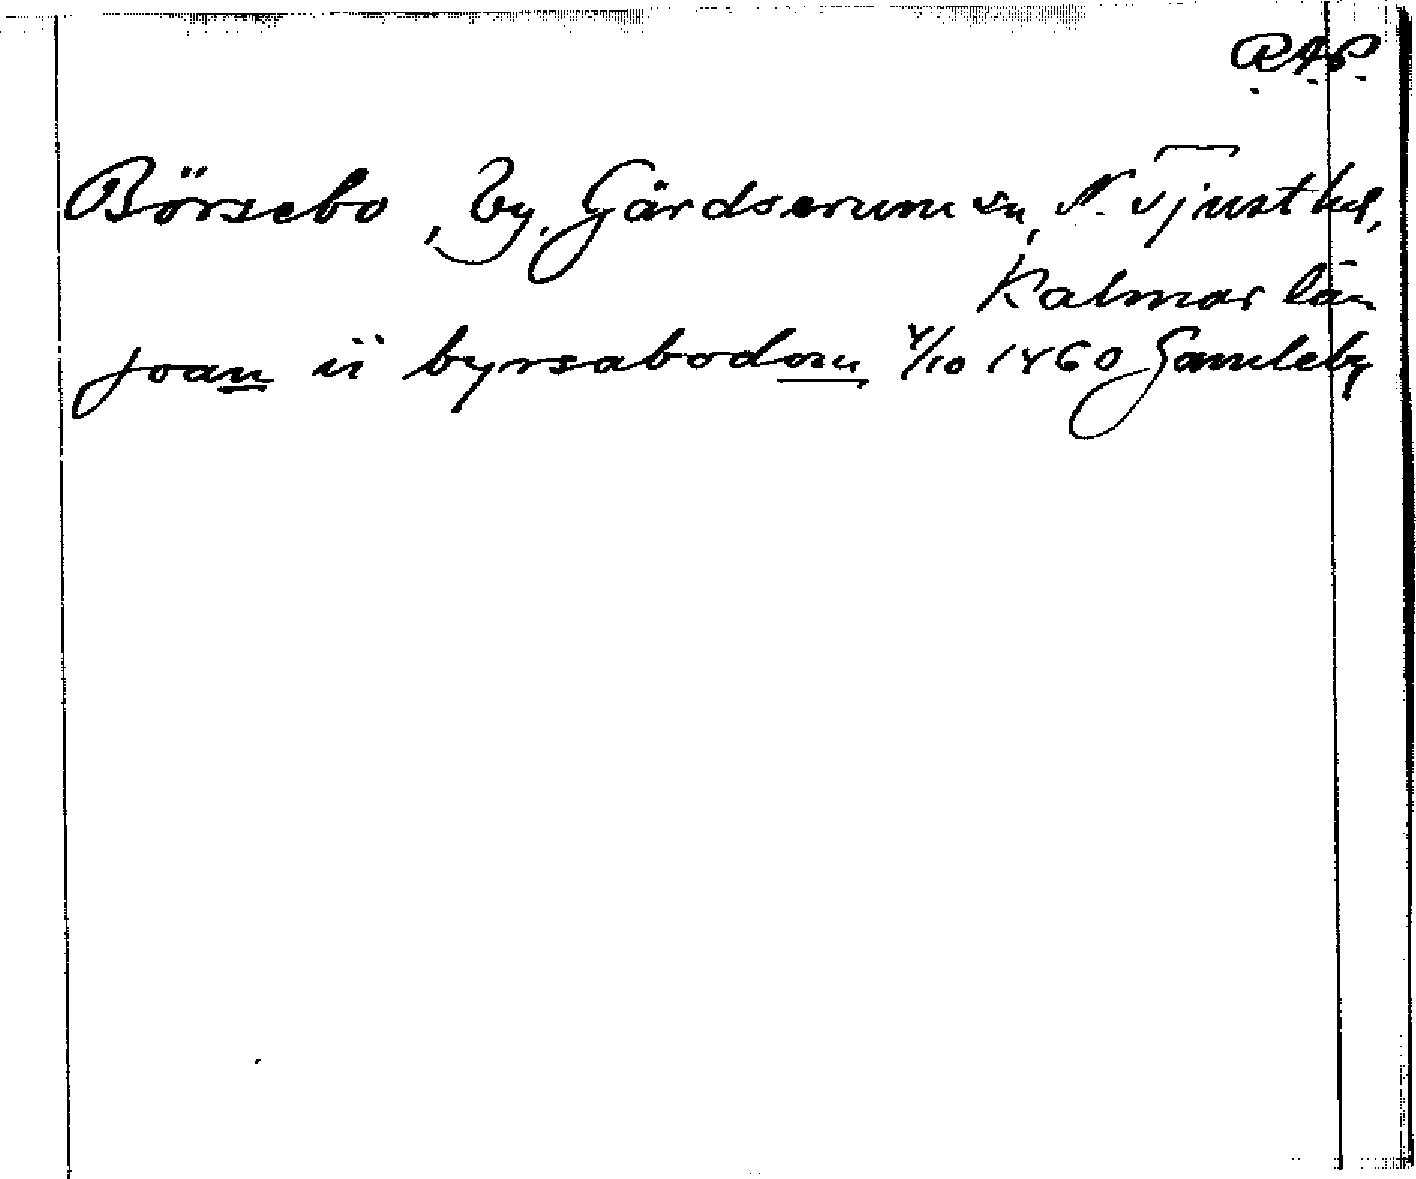 R.A.P.
Börsebo, by, Gärdserum sn, N. Tjust hd,
Kalmar län
joan ii byrsabodom 4/10 1460 Gamleby